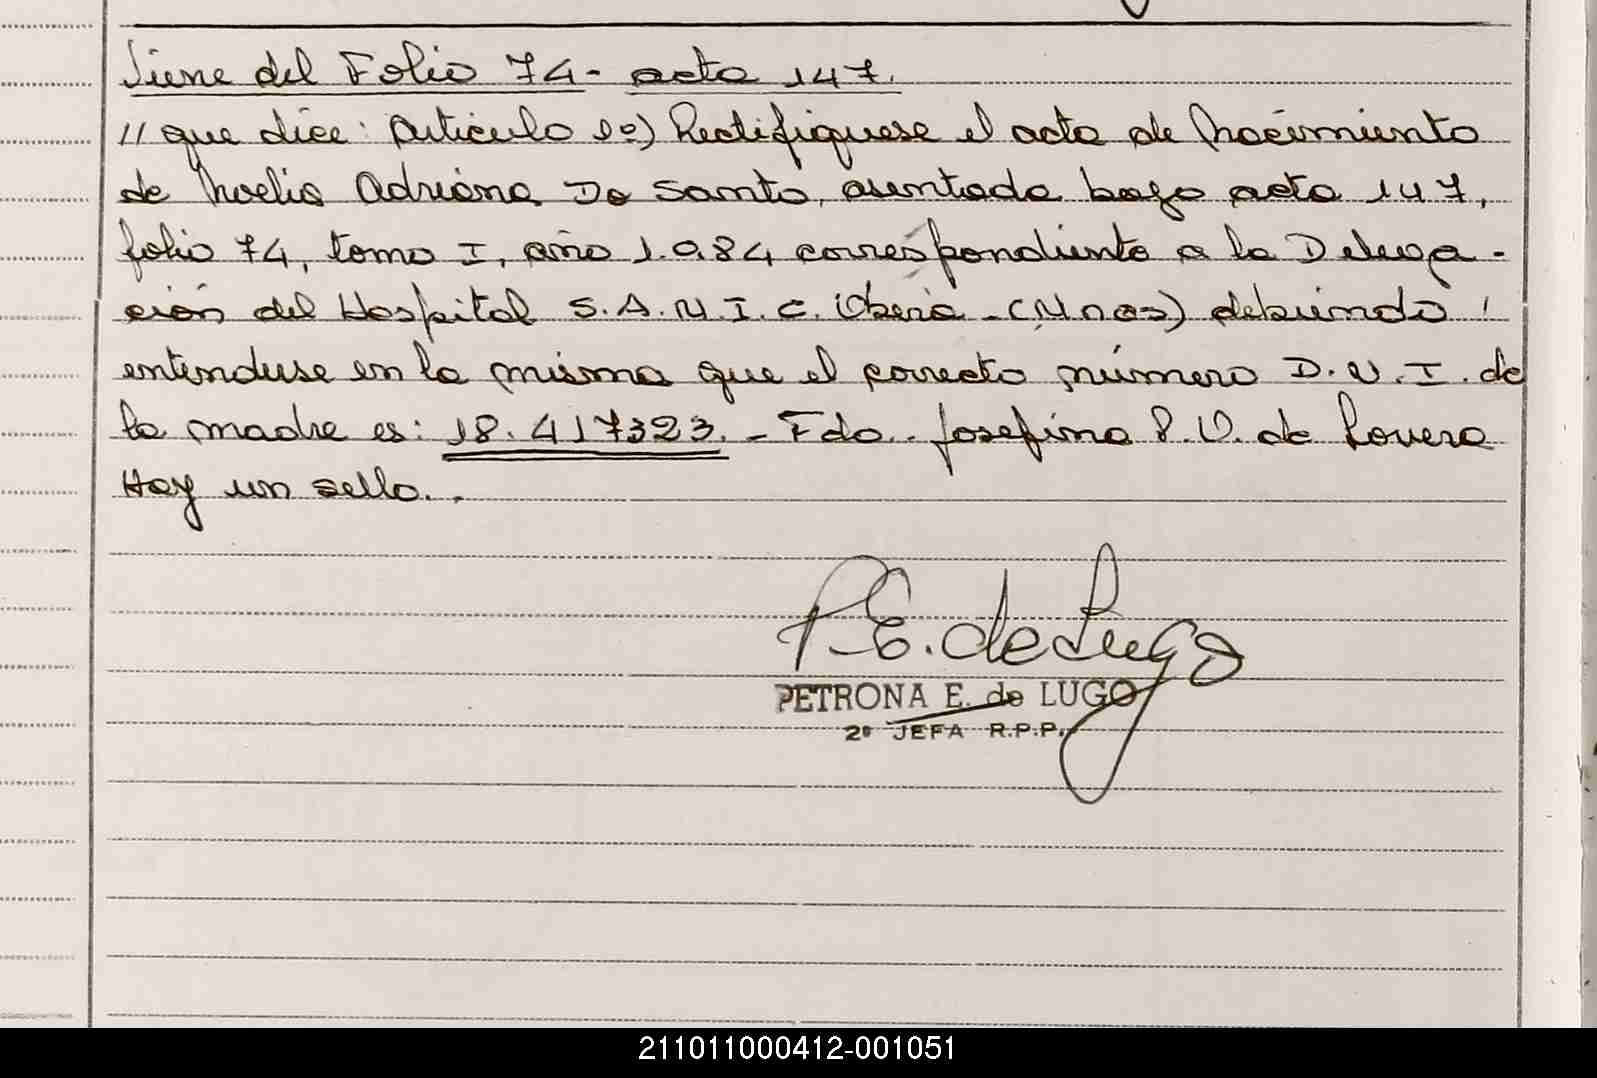 Viene del Folio 74- acta 147.
// que dice: Artículo 1º) Rectifíquese el acta de Nacimiento
de Noelia Adriana Do Santo, asentada bajo acta 147,
folio 74, tomo I, año 1.984 correspondiente a la Delega-
ción del Hospital S.A.M.I.C. Oberá - (Mnes) debiendo
entenderse en la misma que el correcto número D.N.I. de
la madre es: 18.417323. - Fdo. Josefina P. V. de Lovera
Hay un sello..
P.E. de Lugo
PETRONA E. de LUGO
2º JEFA R.P.P.
211011000412-001051